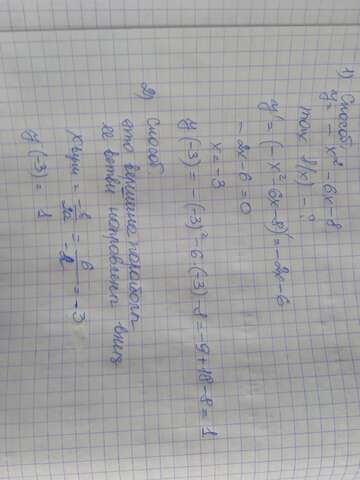 1) Способ
y = -x² - 6x - 8
max f(x) - ?
y' = (-x² - 6x - 8)' = -2x - 6
-2x - 6 = 0
x = -3
y(-3) = -(-3)² - 6·(-3) - 8 = -9 + 18 - 8 = 1
2) Способ
это вершина параболы
ветви направлены вниз
x верш = -b/2a = 6/-2 = -3
y(-3) = 1